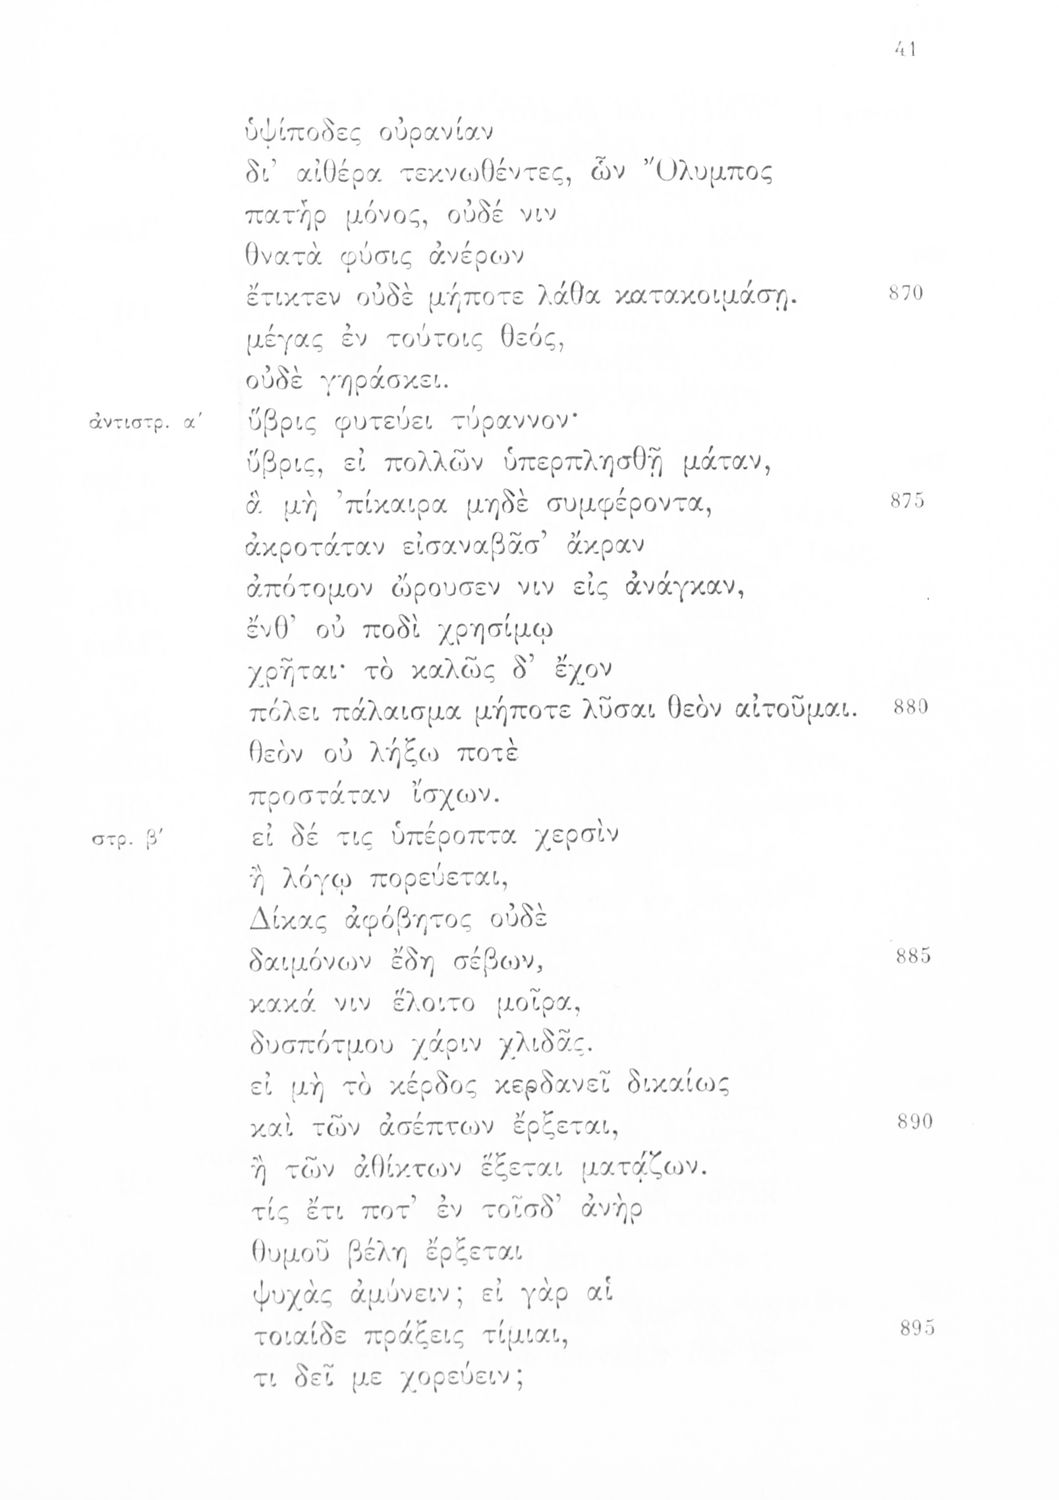 41
ὑψίποδες οὐρανίαν
δι’ αἰθέρα τεκνωθέντες, ὧν Ὄλυμπος
πατὴρ μόνος, οὐδέ νιν
θνατὰ φύσις ἀνέρων
ἔτικτεν οὐδὲ μήποτε λάθα κατακοιμάσῃ. 870
μέγας ἐν τούτοις θεός,
οὐδὲ γηράσκει.
ἀντιστρ. α′ ὕβρις φυτεύει τύραννον·
ὕβρις, εἰ πολλῶν ὑπερπλησθῇ μάταν,
ἃ μὴ ’πίκαιρα μηδὲ συμφέροντα, 875
ἀκροτάταν εἰσαναβᾶσ’ ἄκραν
ἀπότομον ὤρουσεν νιν εἰς ἀνάγκαν,
ἔνθ’ οὐ ποδὶ χρησίμῳ
χρῆται· τὸ καλῶς δ’ ἔχον
πόλει πάλαισμα μήποτε λῦσαι θεὸν αἰτοῦμαι. 880
θεὸν οὐ λήξω ποτὲ
προστάταν ἴσχων.
στρ. β′ εἰ δέ τις ὑπέροπτα χερσὶν
ἢ λόγῳ πορεύεται,
Δίκας ἀφόβητος οὐδὲ
δαιμόνων ἕδη σέβων, 885
κακά νιν ἕλοιτο μοῖρα,
δυσπότμου χάριν χλιδᾶς.
εἰ μὴ τὸ κέρδος κερδανεῖ δικαίως
καὶ τῶν ἀσέπτων ἔρξεται, 890
ἢ τῶν ἀθίκτων ἕξεται ματᾴζων.
τίς ἔτι ποτ’ ἐν τοῖσδ’ ἀνὴρ
θυμοῦ βέλη ἔρξεται
ψυχὰς ἀμύνειν; εἰ γὰρ αἱ
τοιαίδε πράξεις τίμιαι, 895
τι δεῖ με χορεύειν;